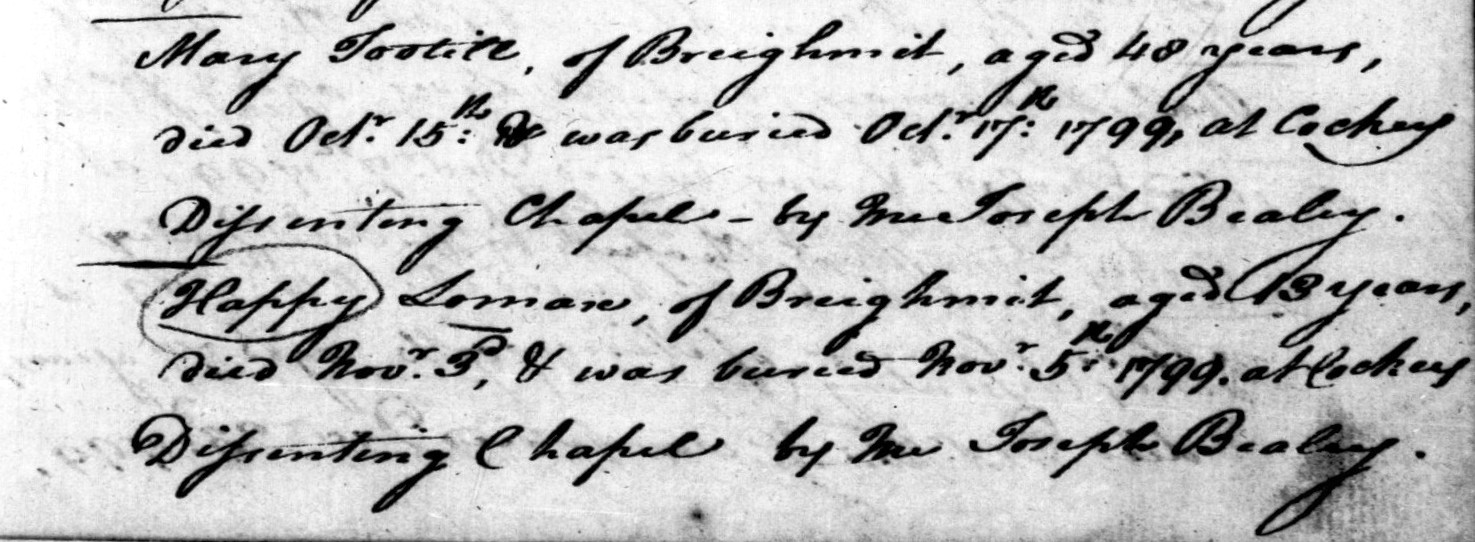 Mary Tootill, of Breighmit, aged 48 years,
died Octr. 15th. & was buried Octr. 17th. 1799, at Cockey
Dissenting Chapel - by me Joseph Bealey.
Happy Lomax, of Breighmit, aged 13 years,
died Novr. 3d, & was buried Novr. 5th. 1799. at Cockey
Dissenting Chapel by me Joseph Bealey.